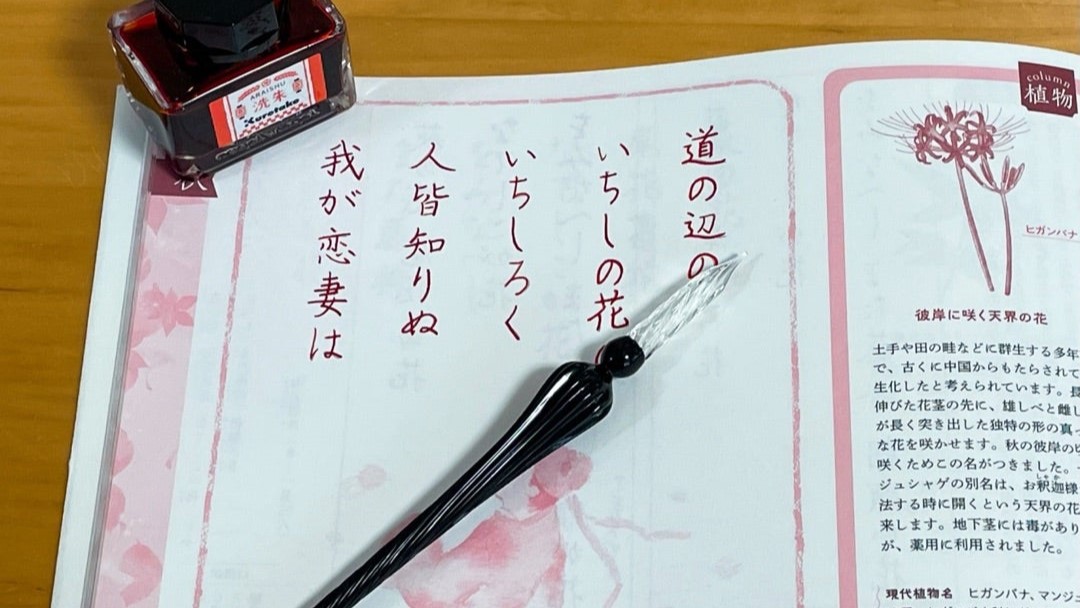 道の辺の
いちしの花
いちしろく
人皆知りぬ
我が恋妻は
column
植物
ヒガンバナ
彼岸に咲く天界の花
土手や田の畦などに群生する多年
で、古くに中国からもたらされて
生化したと考えられています。長
伸びた花茎の先に、雄しべと雌し
が長く突き出した独特の形の真っ
な花を咲かせます。秋の彼岸の
咲くためこの名がつきました。
ジュシャゲの別名は、お釈迦様
しゃか
法する時に開くという天界の花
来します。地下茎には毒があり
が、薬用に利用されました。
現代植物名 ヒガンバナ、マンジュ
ARAISHU
洗朱
Kuretake
秋